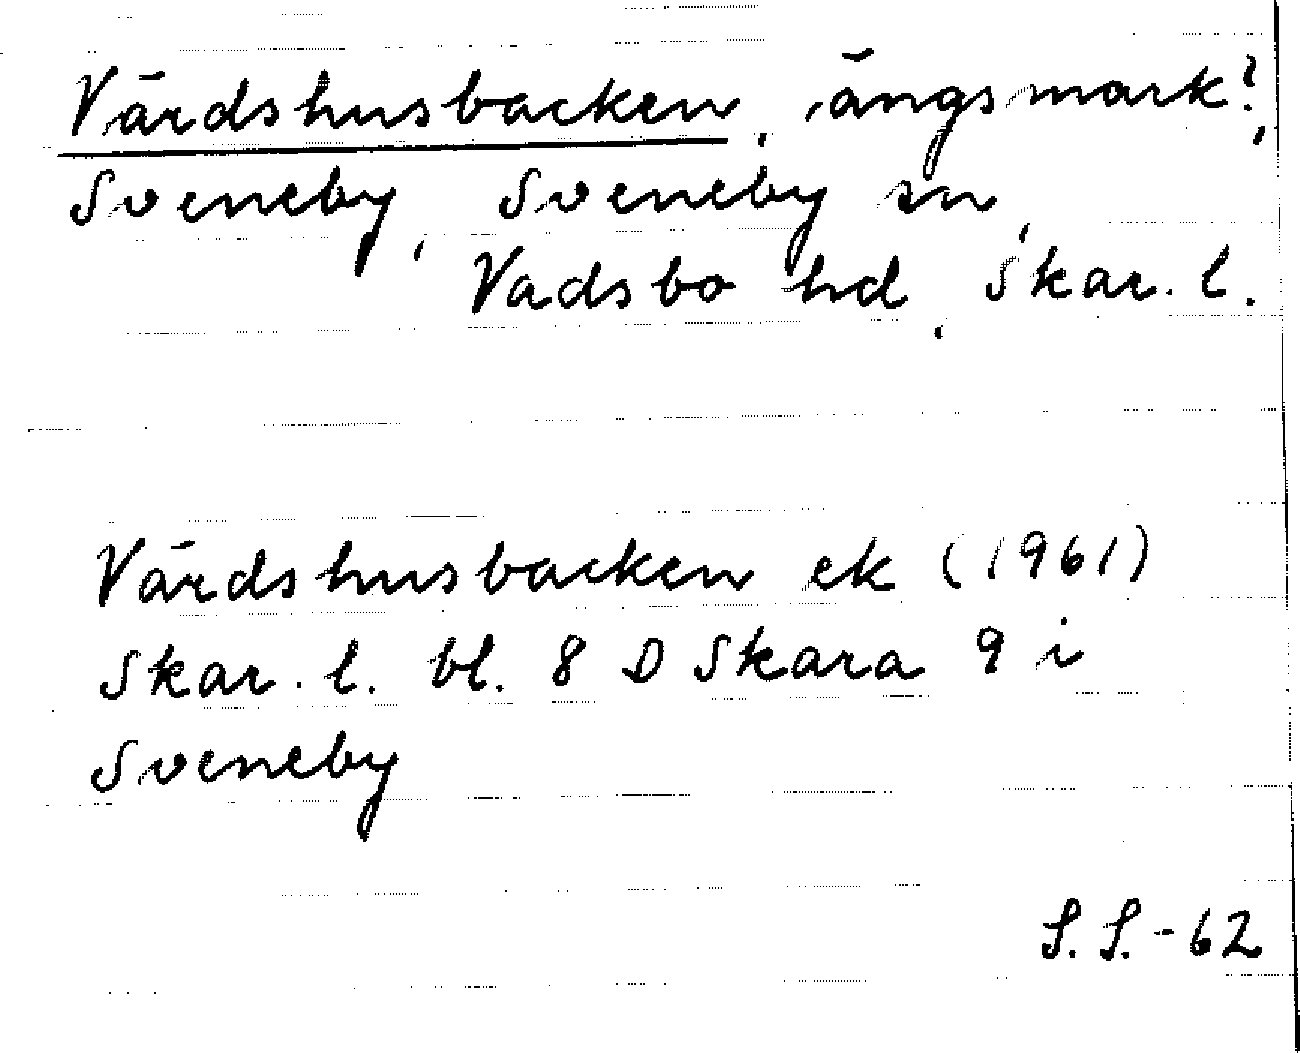 Värdshusbacken, ängsmark?,
Sveneby, Sveneby sn,
Vadsbo hd, Skar. l.
Värdshusbacken ek (1961)
Skar. l. bl. 8 D Skara 9 i
Sveneby
S. S. - 62